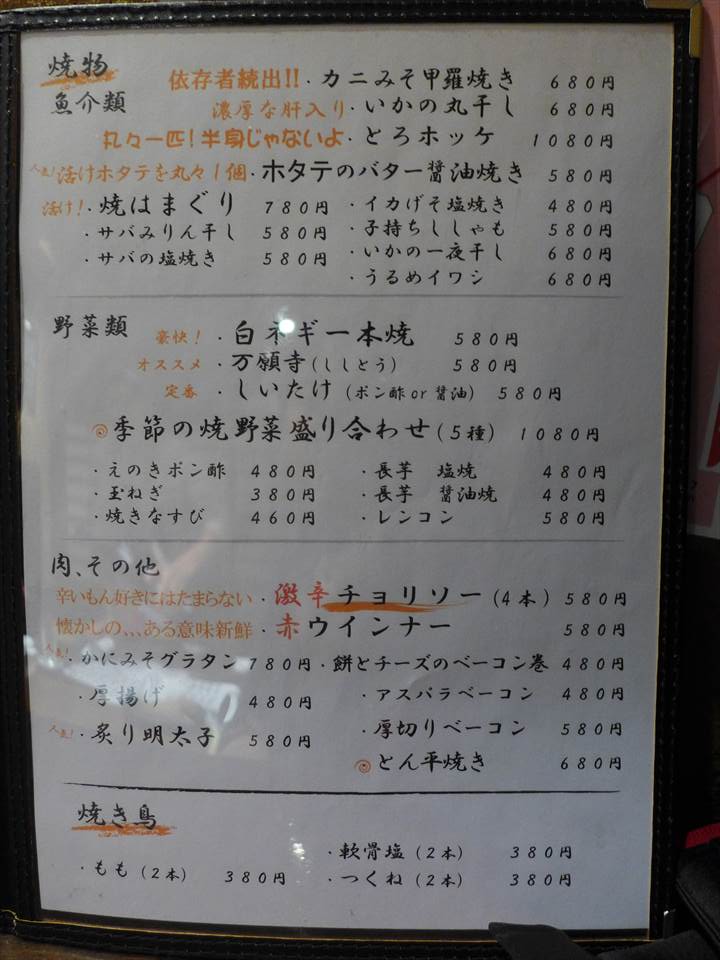 焼物
魚介類
依存者続出!!・カニみそ甲羅焼き 680円
濃厚な肝入り・いかの丸干し 680円
丸々一匹!半身じゃないよ・とろホッケ 1080円
人気!活けホタテを丸々1個・ホタテのバター醤油焼き 580円
活け!・焼はまぐり 780円 ・イカげそ塩焼き 480円
・サバみりん干し 580円 ・子持ちししゃも 580円
・サバの塩焼き 580円 ・いかの一夜干し 680円
・うるめイワシ 680円
野菜類
豪快!・白ネギ一本焼 580円
オススメ・万願寺(ししとう) 580円
定番・しいたけ(ポン酢or醤油) 580円
◎季節の焼野菜盛り合わせ(5種) 1080円
・えのきポン酢 480円 ・長芋 塩焼 480円
・玉ねぎ 380円 ・長芋 醤油焼 480円
・焼きなすび 460円 ・レンコン 580円
肉、その他
辛いもん好きにはたまらない・激辛チョリソー(4本) 580円
懐かしの、、、ある意味新鮮・赤ウインナー 580円
人気!・かにみそグラタン 780円 ・餅とチーズのベーコン巻 480円
・厚揚げ 480円 ・アスパラベーコン 480円
人気!・炙り明太子 580円 ・厚切りベーコン 580円
◎とん平焼き 680円
焼き鳥
・軟骨塩(2本) 380円
・もも(2本) 380円 ・つくね(2本) 380円